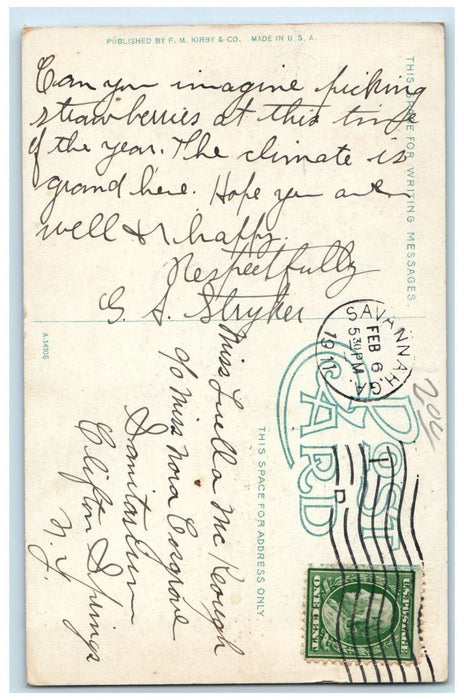 PUBLISHED BY F. M. KIRBY & CO. MADE IN U. S. A.
Can you imagine picking
strawberries at this time
of the year. The climate is
grand here. Hope you are
well & happy.
Respectfully
G. S. Stryker
THIS SPACE FOR WRITING MESSAGES.
A-14105
SAVANNAH, GA.
FEB 6
5 30 PM
1911
204
POST CARD
THIS SPACE FOR ADDRESS ONLY.
Miss Luella Mc Keough
c/o Miss Nora Cosgrove
Sanitarium
Clifton Springs
N. Y.
U.S. POSTAGE
ONE CENT